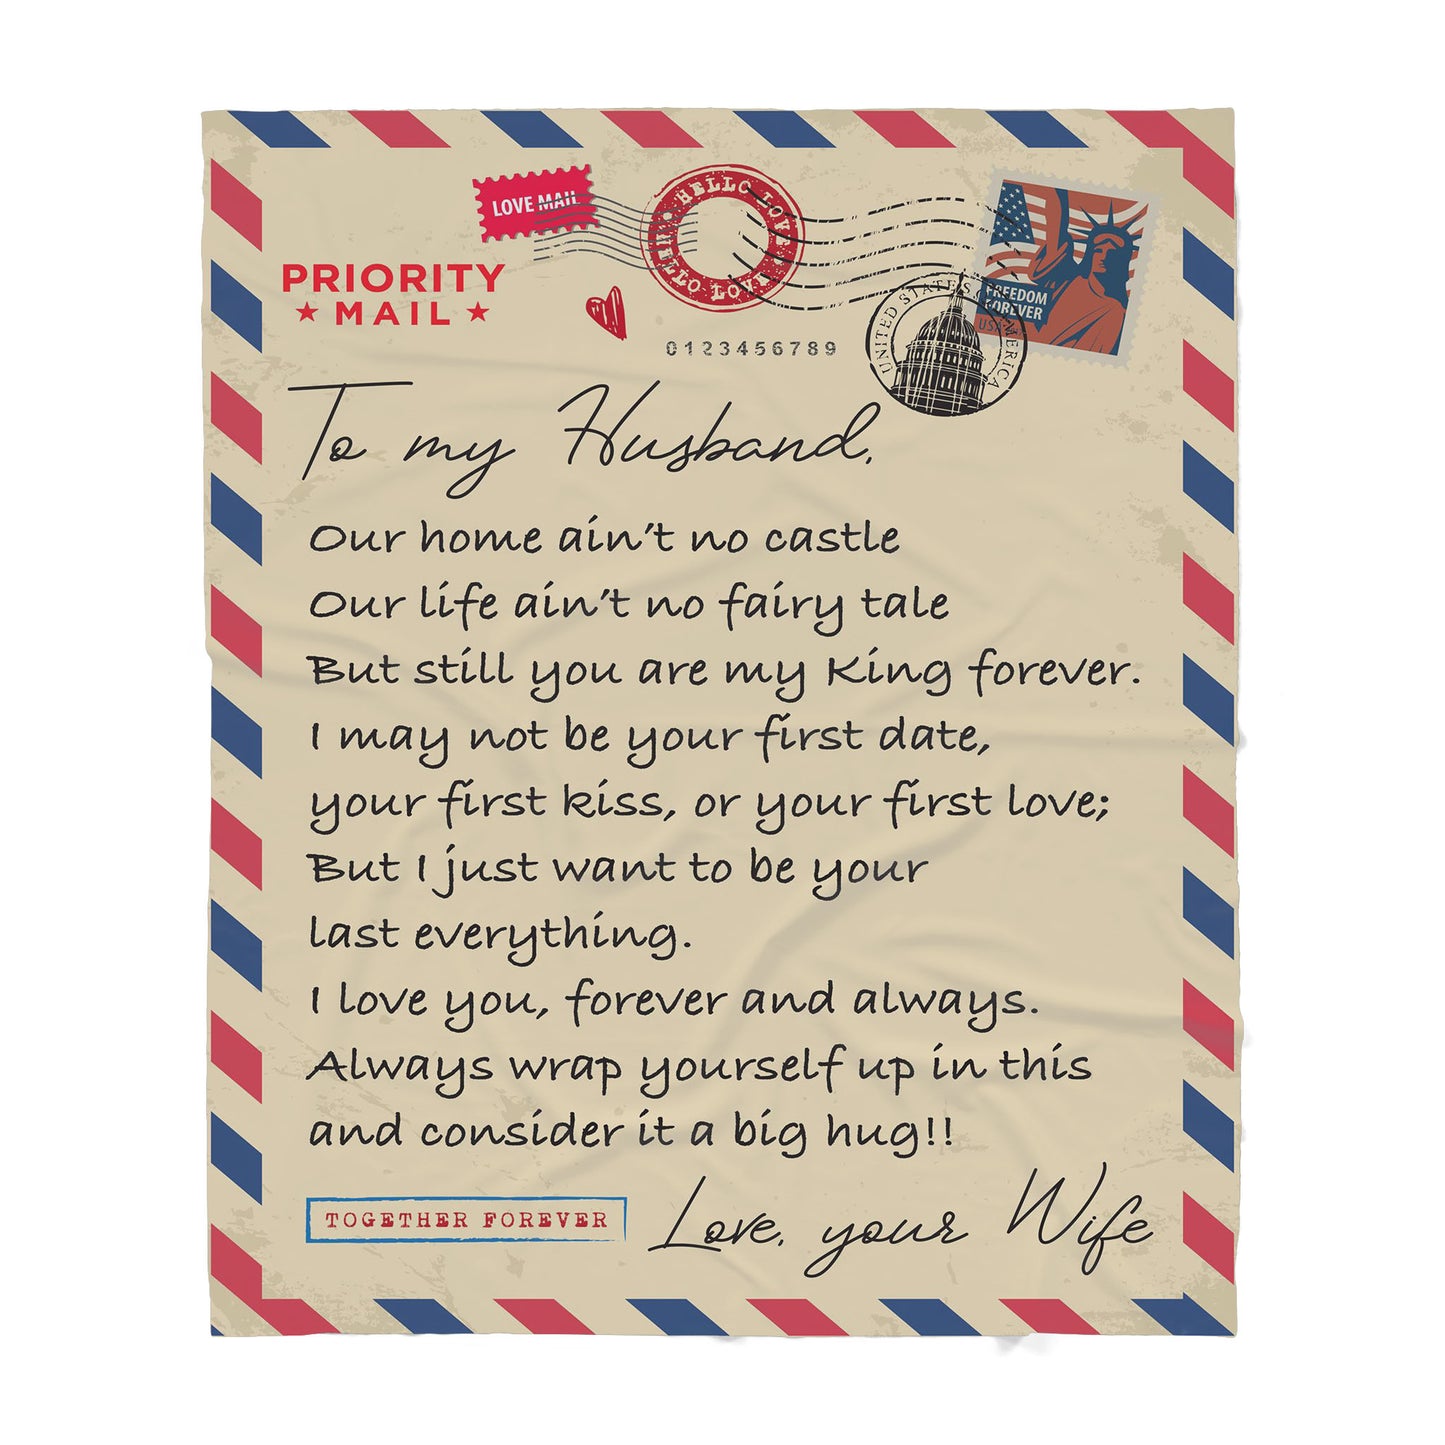 LOVE MAIL
HELLO LOVE
HELLO LOVE
PRIORITY
MAIL
0123456789
FREEDOM
FOREVER
USA
UNITED STATES AMERICA
To my Husband,
Our home ain't no castle
Our life ain't no fairy tale
But still you are my King forever.
I may not be your first date,
your first kiss, or your first love;
But I just want to be your
last everything.
I love you, forever and always.
Always wrap yourself up in this
and consider it a big hug!!
TOGETHER FOREVER
Love, your Wife